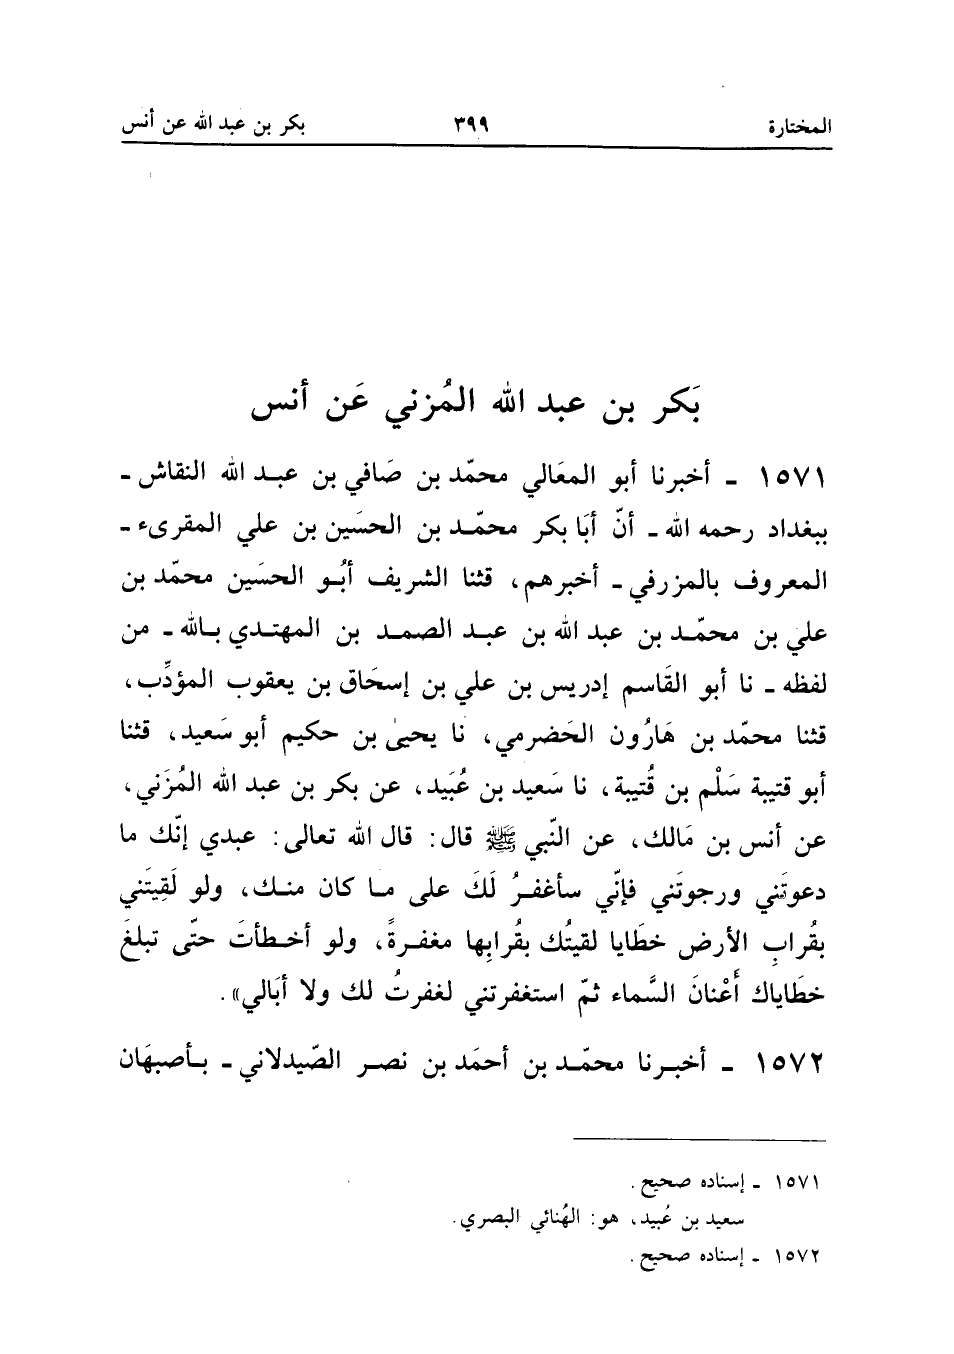 المختارة ٣٩٩ بكر بن عبد الله عن أنس
بَكر بن عبد الله المُزني عَن أنس
١٥٧١ ـ أخبرنا أبو المعَالي محمّد بن صَافي بن عبد الله النقاش ـ
ببغداد رحمه الله ـ أنّ أبَا بكر محمّد بن الحسَين بن علي المقرىء ـ
المعروف بالمزرفي ـ أخبرهم، قثنا الشريف أبُو الحسَين محمّد بن
علي بن محمّد بن عبد الله بن عبد الصمد بن المهتدي بالله ـ من
لفظه ـ نا أبو القَاسم إدريس بن علي بن إسحَاق بن يعقوب المؤدِّب،
قثنا محمّد بن هَارُون الحَضرمي، نا يحيىٰ بن حكيم أبو سَعيد، قثنا
أبو قتيبة سَلْم بن قُتيبة، نا سَعيد بن عُبَيد، عن بكر بن عبد الله المُزَني،
عن أنس بن مَالك، عن النّبي ﷺ قال: قال الله تعالى: عبدي إنّك ما
دعوتَني ورجوتَني فإنّي سأغفرُ لَكَ على ما كان منك، ولو لَقِيتَني
بقُرابِ الأرض خطَايا لقيتُك بقُرابِها مغفرةً، ولو أخطأتَ حتّى تبلغَ
خطَاياك أَعْنانَ السَّماء ثمّ استغفرتني لغفرتُ لك ولا أبَالي».
١٥٧٢ ـ أخبرنا محمّد بن أحمَد بن نصر الصّيدلاني ـ بأصبهَان
١٥٧١ ـ إسناده صحيح.
سعيد بن عُبيد، هو: الهُنائي البصري.
١٥٧٢ ـ إسناده صحيح.